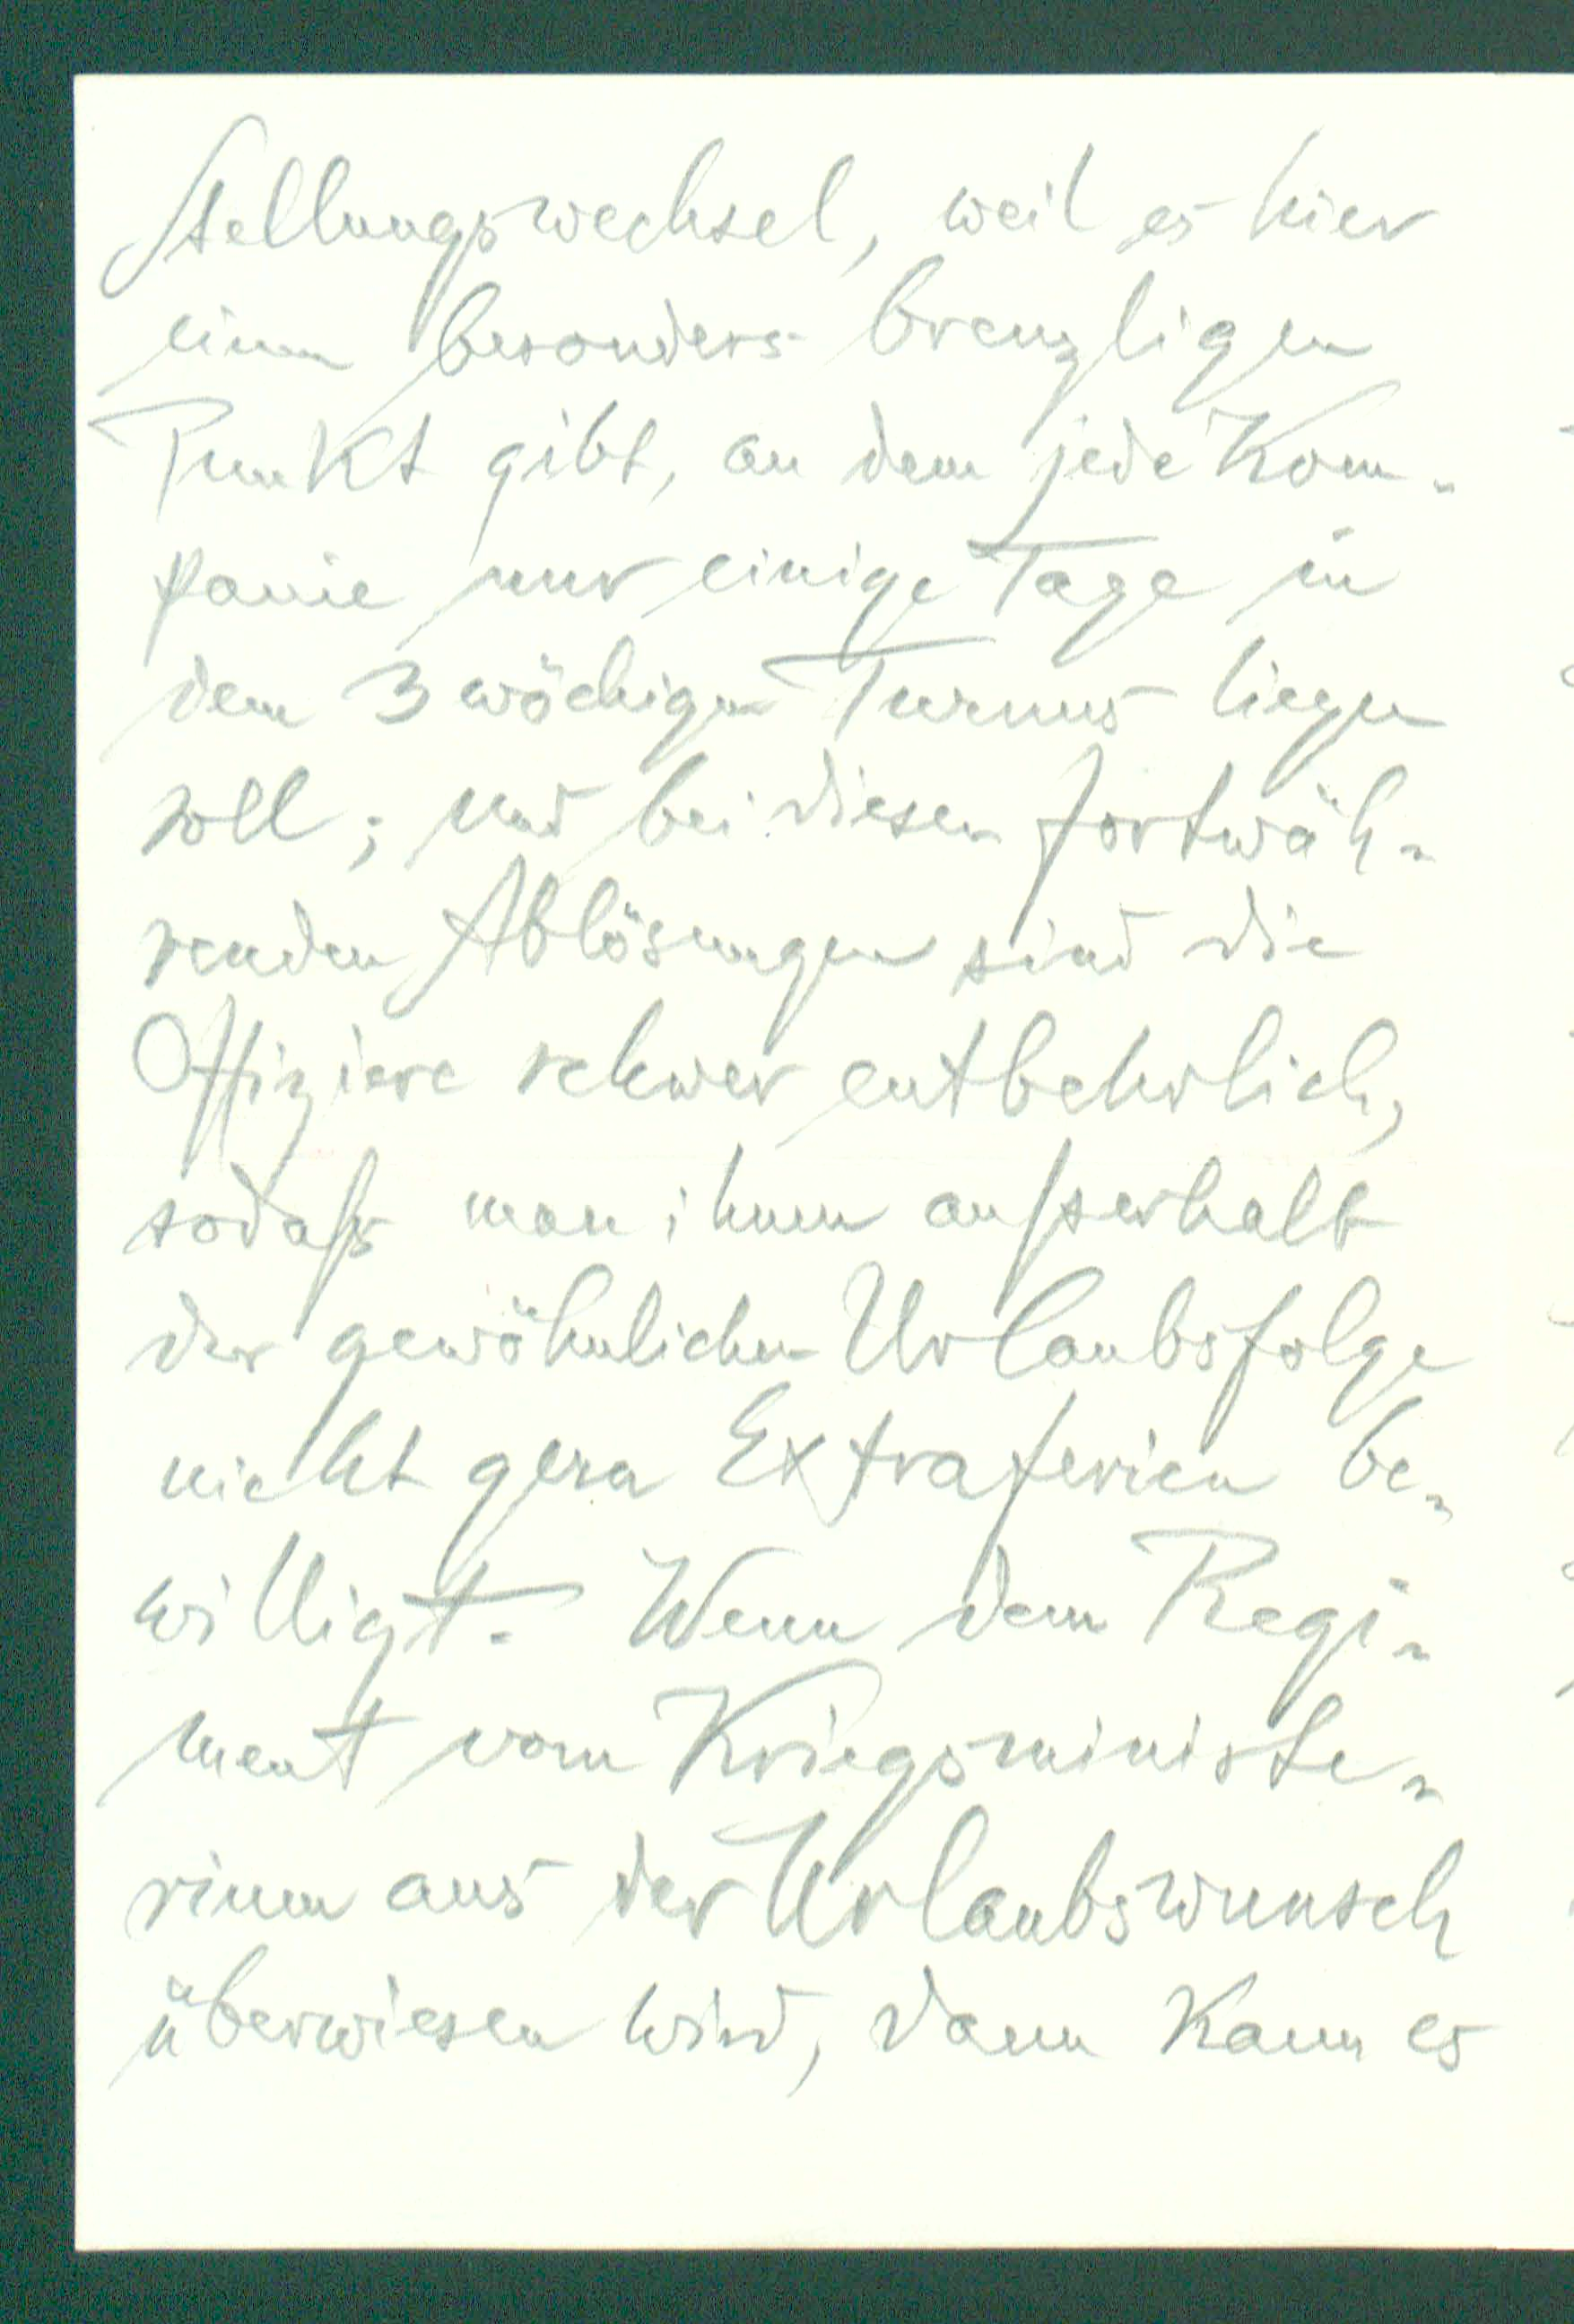 Stellungswechsel, weil es hier
einen besonders brenzligen
Punkt gibt, an dem jede Kom-
panie nur einige Tage in
dem 3 wöchigen Turnus liegen
soll; und bei diesen fortwäh-
renden Ablösungen sind die
Offiziere schwer entbehrlich,
sodaß man ihnen außerhalb
der gewöhnlichen Urlaubsfolge
nicht gern Extraferien be-
willigt. Wenn dem Regi-
ment vom Kriegsministe-
rium aus der Urlaubswunsch
überwiesen wird, dann kann es